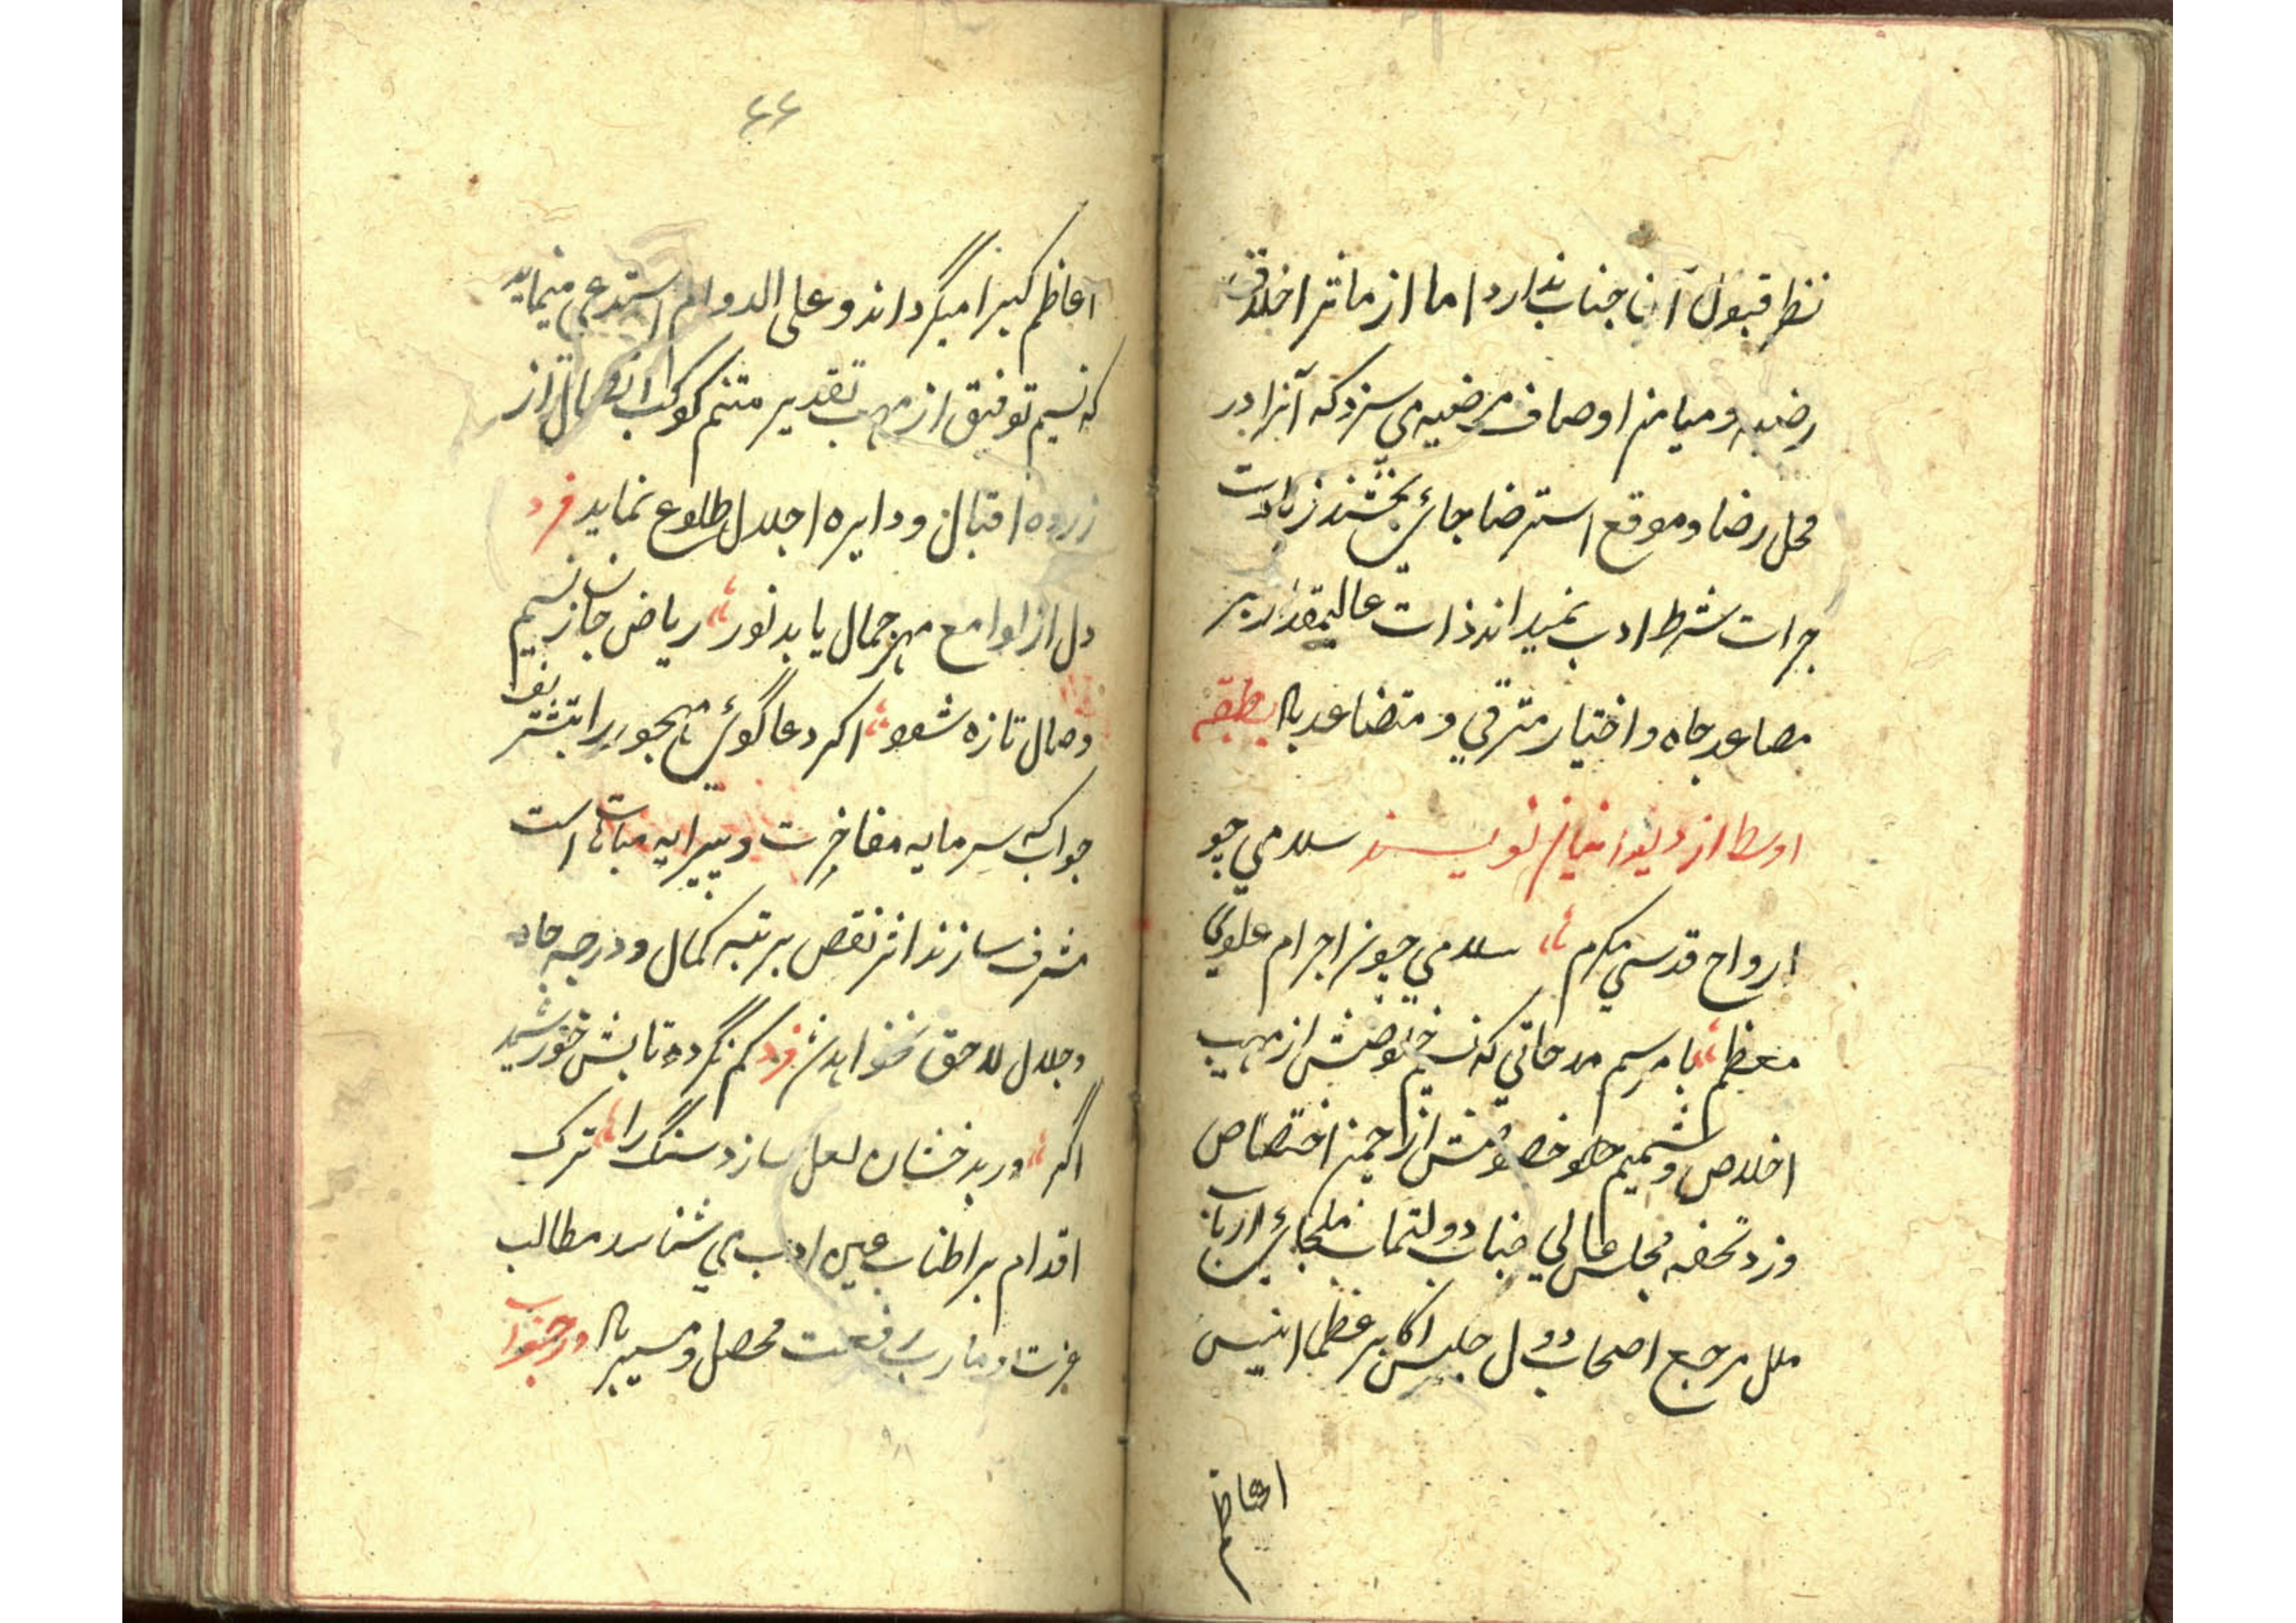 نظر قبول آن جناب ندارد اما از مآثر اخلاق
رضیه و میامن اوصاف مرضیه می سزد که آنرا در
محل رضا و موقع استرضا جائ بخشند زیادت
جرات شرط ادب نمیداند ذات عالیمقدار بر
مصاعد جاه و اختیار مترقی و متضاعد باد بطبقه
اوسط از نویسند سلامی چو
ارواح قدسی مکرم سلامی چو نز اجرام علوی
معظم با مراسم مدحاتی که نسیم خلوصش از مهب
اخلاص و شمیم خصوصش از چمن اختصاص
وزد تحفه مجلس عالی جناب دولتماب ملجائ ارباب
ملل مرجع اصحاب دول جلیس اکابر عظما انیس
اعاظم
۶۶
اعاظم کبرا میگرداند و علی الدوام استدعی مینماید
که نسیم توفیق از مهب تقدیر متنم کوکب اتصال از
زروه اقبال و دایره اجلال طلوع نماید فرد
دل از لوامع مهر جمال یابد نور ریاض جان ز نسیم
وصال تازه شود اکر دعاگوئ مهجور را بتشریف
جواب که سرمایه مفاخرت و پیرایه مباهات است
مشرف سازند اثر نقص برتبه کمال و درجه جاه
و جلال لاحق نخواهد شد فرد کم نگردد تابش خورشید
اگر در بدخشان لعل سازد سنگ را ترک
اقدام بر اطناب عین ادب می شناسد مطالب
عزت و مآرب رفعت محصل و میسر باد در جواب